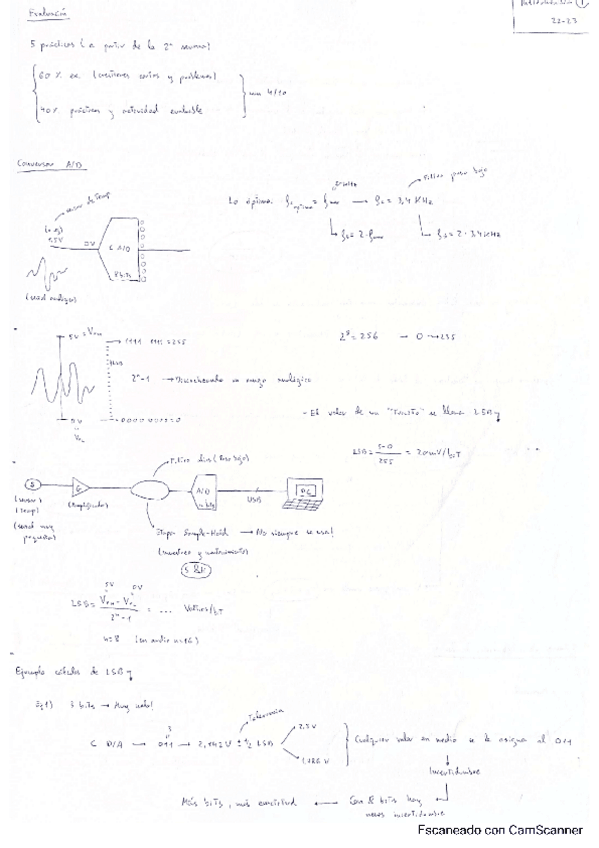 Instrumentación 1
22-23
Evaluación
5 prácticas (a partir de la 2ª semana)
60% ex. (cuestiones cortas y problemas)
40% prácticas y actividad evaluable
min 4/10
Conversor A/D
sensor de temp
5V
0V
C A/D
8 bits
(señal analógica)
Lo óptimo:
filtro paso bajo
= 3,4 KHz
= 2·
= 2·3,4 KHz
5V = V
1111 1111 = 255
2ⁿ-1
rango analógico
0000 0000 = 0
0V
2⁸ = 256 → 0 → 255
- El valor de un "Trocito" se llama LSB
LSB = 5-0 / 255 = 20mV/bit
Filtro (Paso bajo)
S
G
A/D
n bits
USB
PC
(sensor)
(temp)
(señal muy pequeña)
(amplificador)
Etapa Sample-Hold → No siempre se usa!
(muestreo y mantenimiento)
S&H
5V 0V
LSB = / 2ⁿ-1 = ... Voltios/bit
n=8 (en audio n=16)
Ejemplo cálculo de LSB
Ej1) 3 bits → Muy malo!
Tolerancia
3
C D/A → 011 → 2,142 V ± ½ LSB
2,5 V
1,786 V
Cualquier valor en medio se le asigna al 011
Incertidumbre
Más bits, más exactitud ← Con 8 bits hay
menos incertidumbre
Escaneado con CamScanner